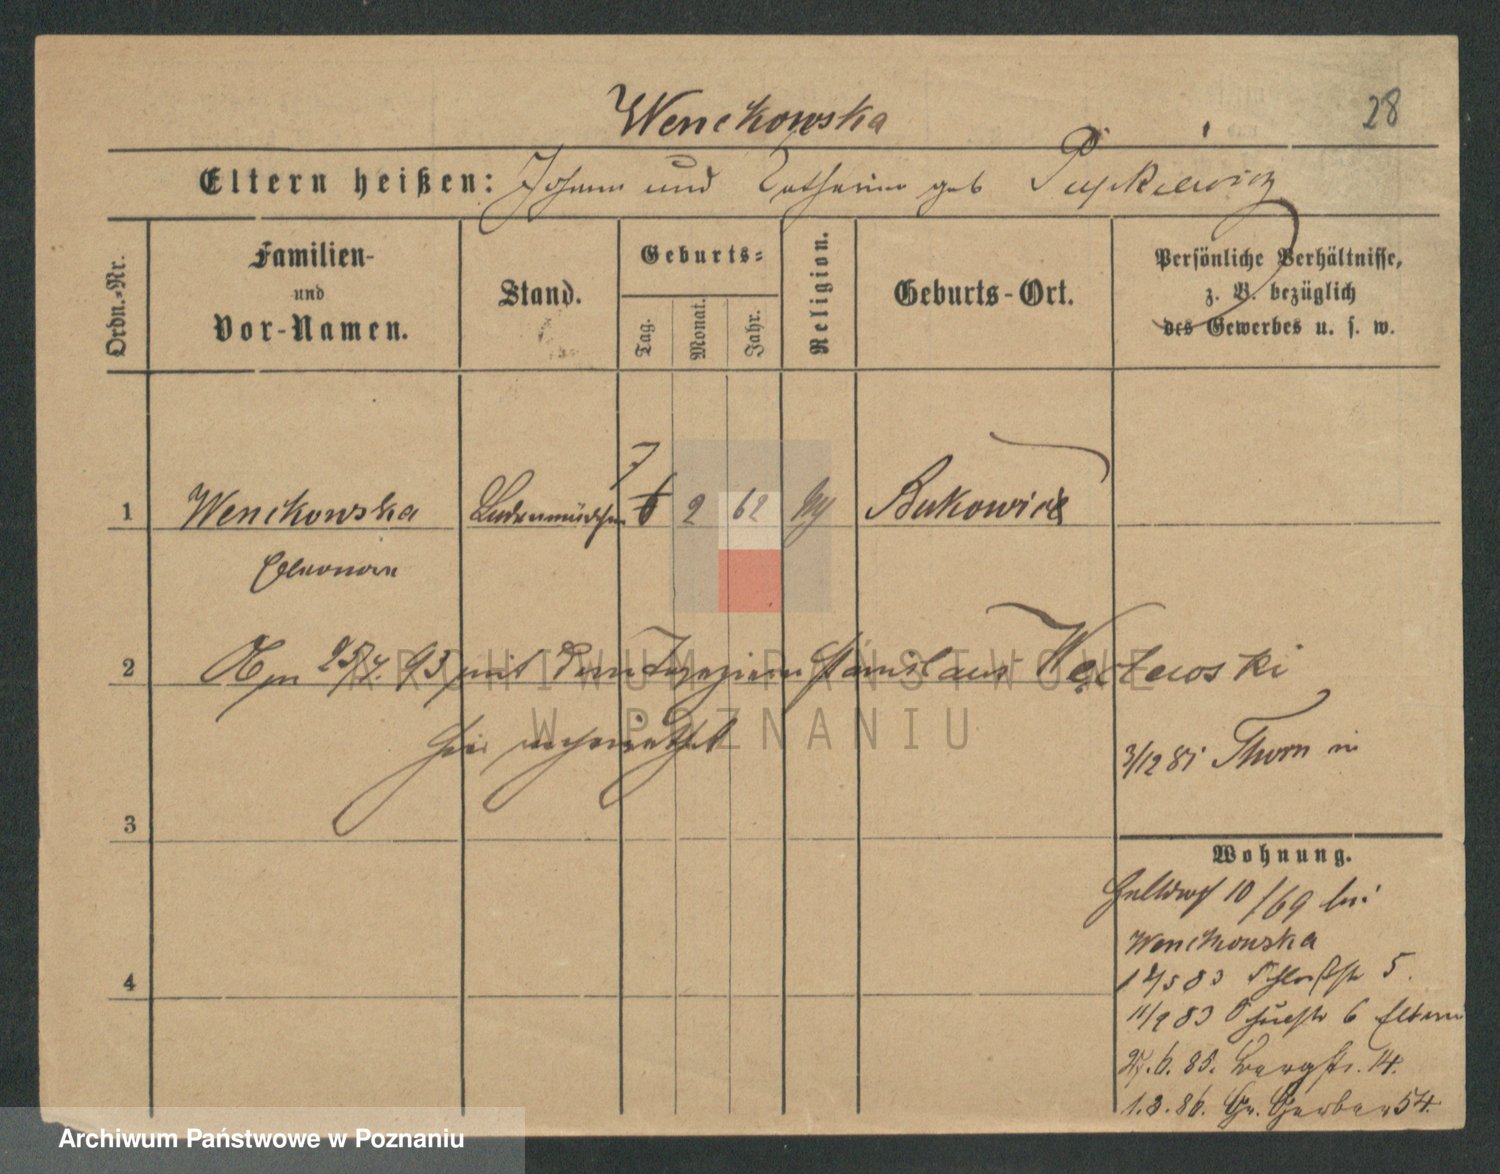 28
Wenckowska
Eltern heißen: Johann und Catharina geb
Ordn.-Nr.
Familien-
und
Vor-Namen.
Stand.
Geburts-
Tag.
Monat.
Jahr.
Religion.
Geburts-Ort.
Persönliche Verhältnisse,
z. B. bezüglich
des Gewerbes u. s. w.
7
1 Wenckowska Ladenmädchen 6 2 62 Bukowiec
Eleonore
2 Am 25/4. 93 mit dem Stanislaus
hier verheirathet
3/12 81 Thorn
3
Wohnung.
10/69 bei
Wenckowska
4
5 83 Schloßstr 5.
11/9 83 6 Eltern
6. 85. Bergstr. 14.
1.3.86. Gr. Gerber 54.
ARCHIWUM PAŃSTWOWE
W POZNANIU
Archiwum Państwowe w Poznaniu